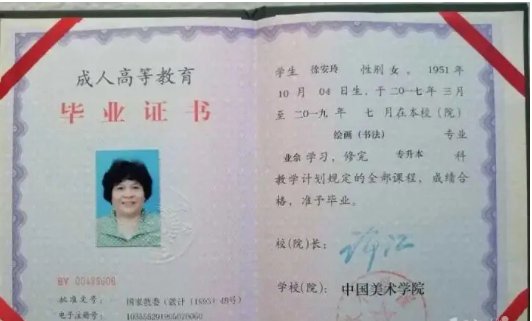 成人高等教育
毕业证书
批准文号: 国家教委(教计
电子注册号:
学生 徐安玲 性别 女 。 1951 年
10 月 04 日生, 于二〇一七年 三月
至 二〇一九年 七 月在本校(院)
绘画(书法) 专业
业余 学习, 修完 专升本 科
教学计划规定的全部课程, 成绩合
格, 准予毕业。
校(院)长: 许江
学校(院): 中国美术学院